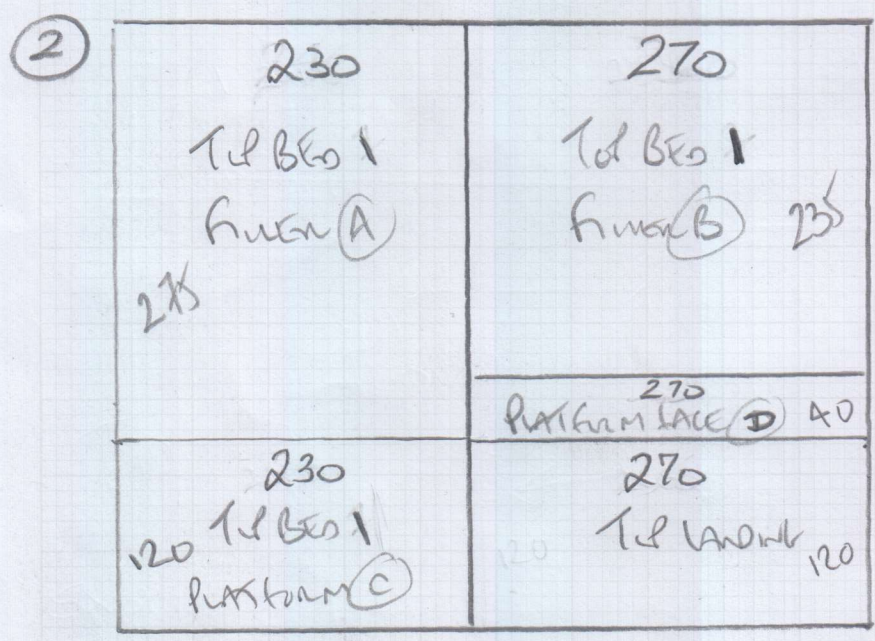 2
230
TOP BED 1
FILLER A
275
270
TOP BED 1
FILLER B 235
270
PLATFORM FACE D 40
230
120 TOP BED 1
PLATFORM C
270
TOP LANDING 120